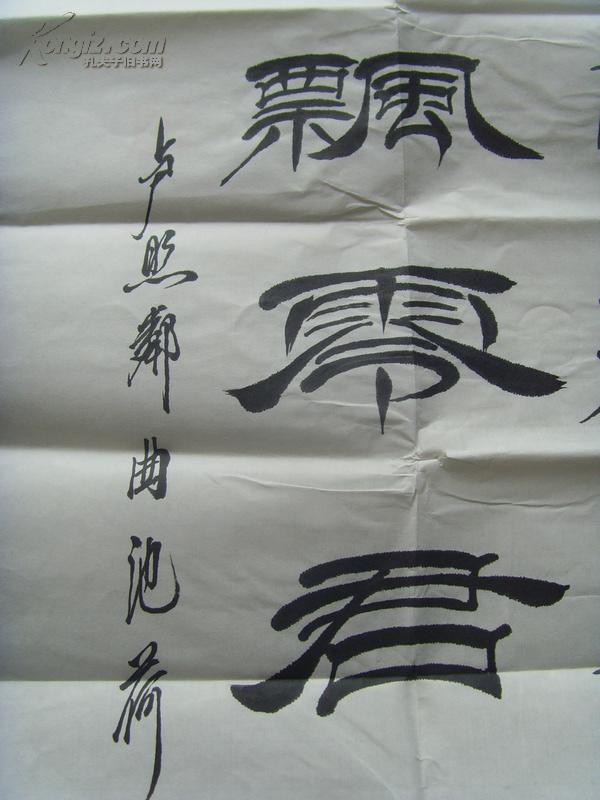 飄零君
卢照鄰曲池荷
Kongfz.com
孔夫子旧书网